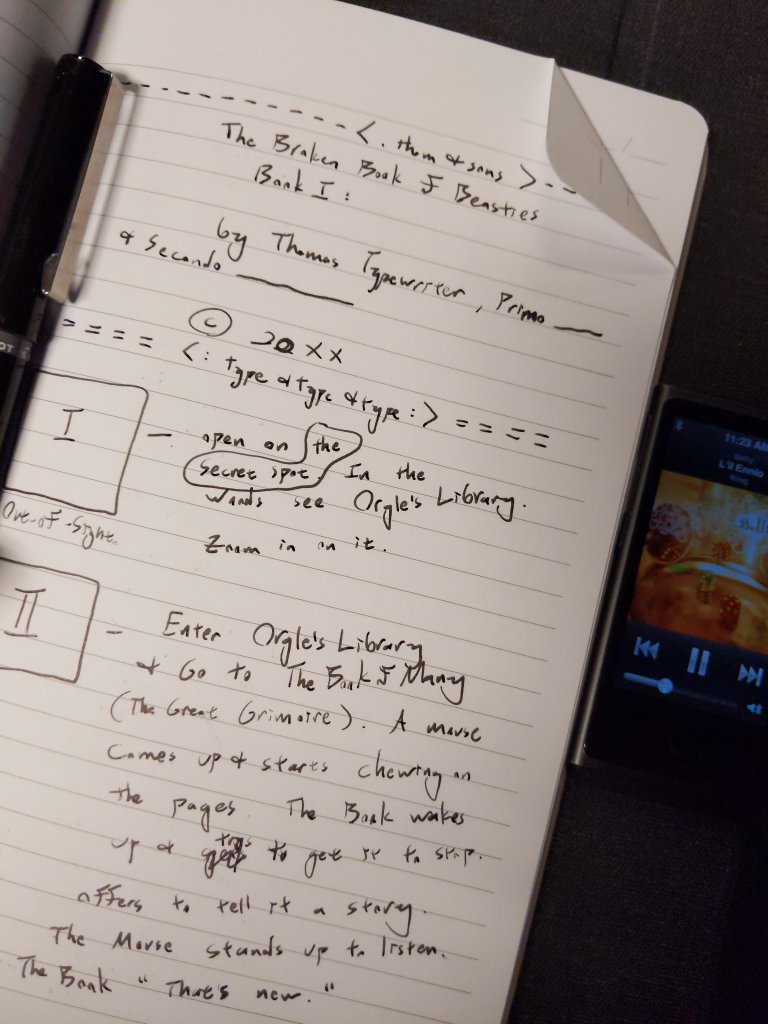 - - - - - - - - - - - - < . thom & sons > - - -
The Broken Book of Beasties
Book I :
by Thomas Typewriter, Primo ___
& Secondo ______
© 20XX
= = = = <: type & type & type :> = = = =
I
- open on the
secret spot. In the
woods see Orgle's Library.
Zoom in on it.
Out-of-Sight.
II
- Enter Orgle's Library
& Go to The Book of Many
(The Great Grimoire). A mouse
comes up & starts chewing on
the pages. The Book wakes
up & trys to get it to stop.
offers to tell it a story.
The Mouse stands up to listen.
The Book "That's new."
11:23 AM
Belly
L'il Ennio
King